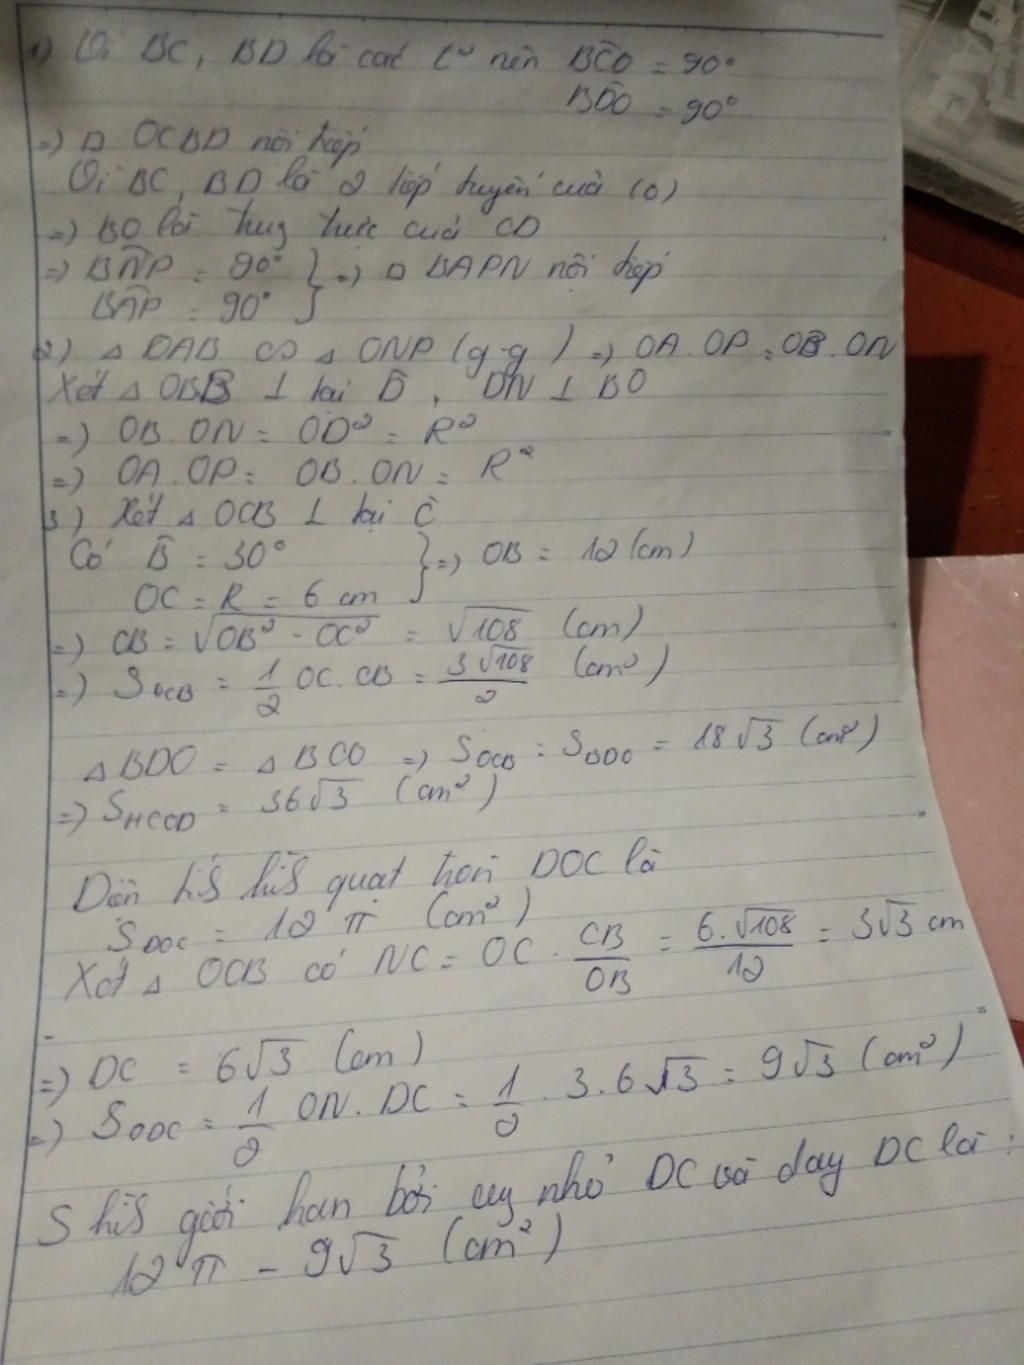 1) Vì BC, BD là cat t² nên BĈO = 90°
BD̂O = 90°
=) □ OCBD nội tiếp
Vì BC, BD là 2 tiếp tuyến của (O)
=) BO là trung trực của CD
=) BN̂P = 90° } =) □ BAPN nội tiếp
BÂP = 90°
2) △ OAB ∽ △ ONP (g-g) =) OA.OP = OB.ON
Xét △ OBB ⊥ tại D̂, DN ⊥ BO
=) OB.ON = OD² = R²
=) OA.OP = OB.ON = R²
3) Xét △ OCB ⊥ tại Ĉ
Có B̂ = 30° } =) OB = 12 (cm)
OC = R = 6 cm
=) CB = √(OB² - OC²) = √108 (cm)
=) S OCB = 1/2 OC.CB = 3√108/2 (cm²)
△ BDO = △ BCO =) S OCB = S BDO = 18√3 (cm²)
=) S HCOD = 36√3 (cm²)
quạt tròn DOC là
S DOC = 12 π (cm²)
Xét △ OCB có NC = OC . CB/OB = 6.√108/12 = 3√3 cm
=) DC = 6√3 (cm)
=) S ODC = 1/2 ON.DC = 1/2 . 3.6√3 = 9√3 (cm²)
S giới hạn bởi cung nhỏ DC và dây DC là :
12 π - 9√3 (cm²)